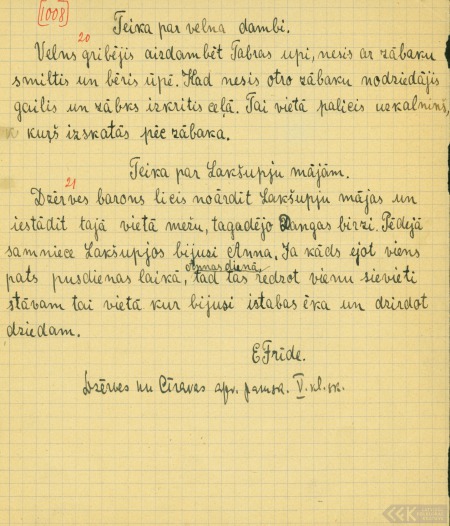 [1008]
Teika par velna dambi.
20
Velns gribējis aizdambēt Tabras upi, nesis ar zābaku
smiltis un bēris ūpē. Kad nesis otro zābaku nodziedājis
gailis un zābks izkritis ceļā. Tai vietā palicis uzkalniņš,
kurš izskatās pēc zābaka.
Teika par Lakšupju mājām.
21
Dzērves barons licis noārdīt Lakšupju mājas un
iestādīt tajā vietā mežu, tagadējo Dangas birzi. Pēdējā
samniece Lakšupjos bijusi Anna. Ja kāds ejot viens
Annas dienā,
pats pusdienas laikā, tad tas redzot vienu sievieti
stāvam tai vietā kur bijusi istabas ēka un dzirdot
dziedam.
E Frīde.
Dzērves un Cīravas apv. pamsk. V. kl. sk.